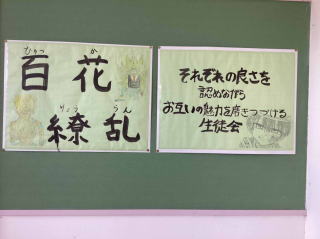 ひゃっ か
百 花
りょう らん
繚 乱
それぞれの良さを
認めながら
お互いの魅力を磨きつづける
生徒会